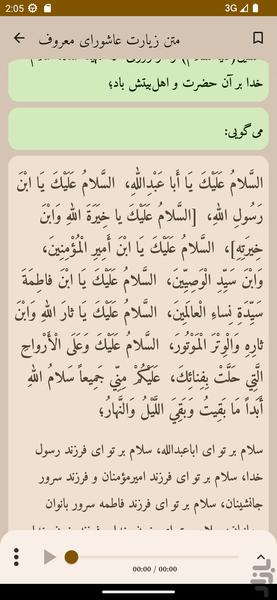 2:05
3G
متن زیارت عاشورای معروف
خدا بر آن حضرت و اهل‌بیتش باد؛
می‌گویی:
السَّلامُ عَلَيْكَ يَا أَبا عَبْدِاللّٰهِ، السَّلامُ عَلَيْكَ يَا ابْنَ
رَسُولِ اللّٰهِ، [السَّلامُ عَلَيْكَ يا خِيَرَةَ اللّٰهِ وَابْنَ
خِيَرَتِهِ]، السَّلامُ عَلَيْكَ يَا ابْنَ أَمِيرِ الْمُؤْمِنِينَ،
وَابْنَ سَيِّدِ الْوَصِيِّينَ، السَّلامُ عَلَيْكَ يَا ابْنَ فاطِمَةَ
سَيِّدَةِ نِساءِ الْعالَمِينَ، السَّلامُ عَلَيْكَ يَا ثارَ اللّٰهِ وَابْنَ
ثارِهِ وَالْوِتْرَ الْمَوْتُورَ، السَّلامُ عَلَيْكَ وَعَلَى الْأَرْواحِ
الَّتِي حَلَّتْ بِفِنائِكَ، عَلَيْكُمْ مِنِّي جَمِيعاً سَلامُ اللّٰهِ
أَبَداً مَا بَقِيتُ وَبَقِيَ اللَّيْلُ وَالنَّهارُ؛
سلام بر تو ای اباعبدالله، سلام بر تو ای فرزند رسول
خدا، سلام بر تو ای فرزند امیرمؤمنان و فرزند سرور
جانشینان، سلام بر تو ای فرزند فاطمه سرور بانوان
00:00 / 00:00
بازار